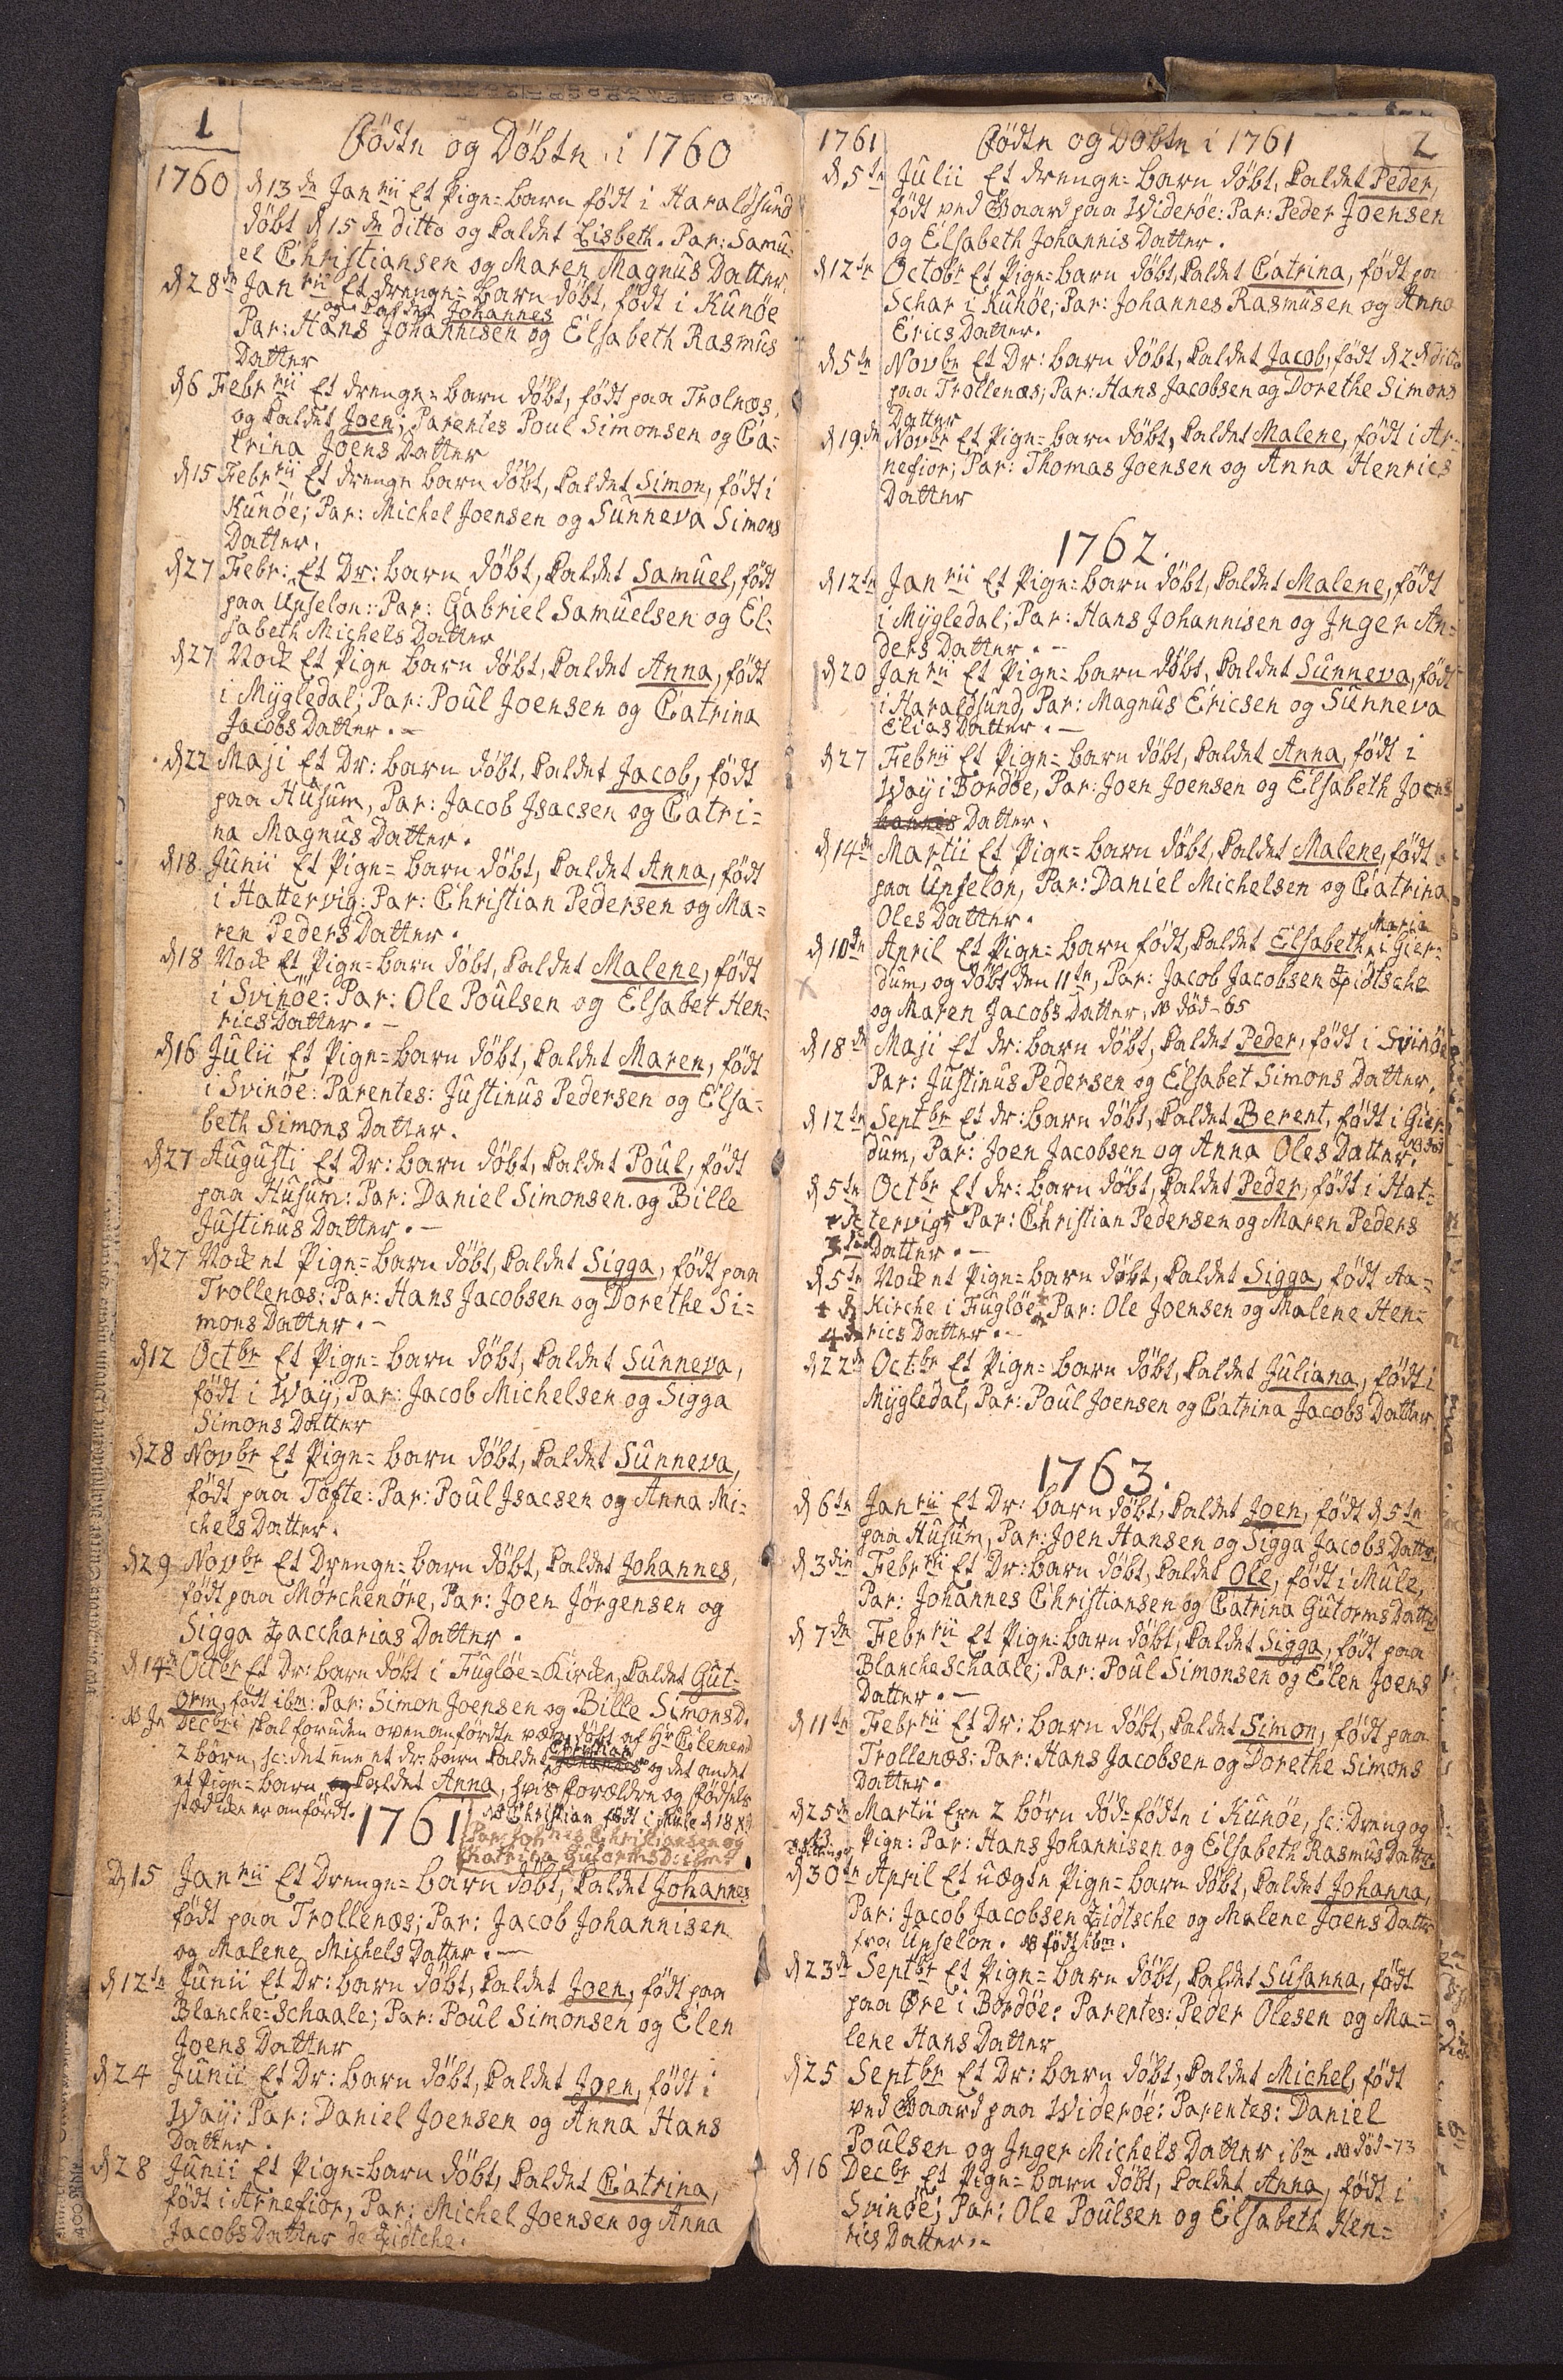 1
Födte og Döbte i 1760
1760 d 13de Janrii Et Pige=barn födt i Haraldsund
döbt d 15de ditto og kaldet Lisbeth. Par: Samu=
el Christiansen og Maren Magnus Datter.
d 28de Janrii Et drenge=barn döbt, födt i Kunöe
og kaldet Johannes
Par: Hans Johannisen og Elsabeth Rasmus
Datter
d 6 Febrrii Et drenge=barn döbt, födt paa Trolnæs,
og kaldet Joen; Parentes Poul Simonsen og Ca=
trina Joens Datter
d 15 Febrrii Et drenge barn döbt, kaldet Simon, födt i
Kunöe; Par: Michel Joensen og Sunneva Simons
Datter.
d 27 Febr: Et Dr: barn döbt, kaldet Samuel, födt
paa Unselon: Par: Gabriel Samuelsen og El=
sabeth Michels Datter
d 27 Et Pige barn döbt, kaldet Anna, födt
i Mygledal; Par: Poul Joensen og Catrina
Jacobs Datter.-
d 22 Maji Et Dr: barn döbt, kaldet Jacob, födt
paa Husum, Par: Jacob Isacsen og Catri=
na Magnus Datter.
d 18 Junii Et Pige=barn döbt, kaldet Anna, födt
i Hattervig: Par: Christian Pedersen og Ma=
ren Peders Datter.
d 18 Et Pige=barn döbt, kaldet Malene, födt
i Svinöe: Par: Ole Poulsen og Elsabet Hen=
rics Datter.-
d 16 Julii Et Pige=barn döbt, kaldet Maren, födt
i Svinöe: Parentes: Justinus Pedersen og Elsa=
beth Simons Datter.
d 27 Augusti Et Dr: barn döbt, kaldet Poul, födt
paa Husum: Par: Daniel Simonsen og Bille
Justinus Datter.-
d 27 et Pige=barn döbt, kaldet Sigga, födt paa
Trollenæs: Par: Hans Jacobsen og Dorethe Si=
mons Datter.-
d 12 Octbr Et Pige=barn döbt, kaldet Sunneva,
födt i Way; Par: Jacob Michelsen og Sigga
Simons Datter
d 28 Novbr Et Pige=barn döbt, kaldet Sunneva,
födt paa Tofte: Par: Poul Isacsen og Anna Mi=
chels Datter.
d 29 Novbr Et Drenge=barn döbt, kaldet Johannes,
födt paa Mörchenöre, Par: Joen Jörgensen og
Sigga Zaccharias Datter.
d 14de Octbr Et Dr: barn döbt i Fuglöe=Kircke, kaldet Gut=
orm, födt ibm: Par: Simon Joensen og Bille Simons D.
NB In Decbri skal foruden ovenanförte være döbt af Hr Clemend
2 börn, sc: det eene et dr: barn kaldet Christian og det andet
et Pige=barn kaldet Anna, hvis forældre og födsels
sted icke er anfördt.
1761
NB Christian födt i Mule d 18
Par: Johannes Christiansen og
Chatrina Gutorms D: ibm
D 15 Janrii Et Drenge=barn döbt, kaldet Johannes
födt paa Trollenæs; Par: Jacob Johannisen
og Malene Michels Datter.-
d 12te Junii Et Dr: barn döbt, kaldet Joen, födt paa
Blanche=Schaale; Par: Poul Simonsen og Elen
Joens Datter
d 24 Junii Et Dr: barn döbt, kaldet Joen, födt i
Way: Par: Daniel Joensen og Anna Hans
Datter.
d 28 Junii Et Pige=barn döbt, kaldet Catrina,
födt i Arnefior, Par: Michel Joensen og Anna
Jacobs Datter de Zidtche.
1761 Födte og Döbte i 1761 2
d 5te Julii Et drenge=barn döbt, kaldet Peder,
födt ved Gaard paa Wideröe: Par: Peder Joensen
og Elsabeth Johannis Datter.
d 12te Octobr Et Pige=barn döbt, kaldet Catrina, födt paa
Schar i Kunöe; Par: Johannes Rasmusen og Anna
Erics Datter.
d 5te Novbr Et Dr: barn döbt, kaldet Jacob, födt d 2de ditto
paa Trollenæs; Par: Hans Jacobsen og Dorethe Simons
Datter
d 19de Novbr Et Pige=barn döbt, kaldet Malene, födt i Ar=
nefior; Par: Thomas Joensen og Anna Henrics
Datter
1762.
d 12te Janrii Et Pige=barn döbt, kaldet Malene, födt
i Mygledal; Par: Hans Johannisen og Inger An=
ders Datter.-
d 20 Janrii Et Pige=barn döbt, kaldet Sunneva, födt
i Haraldsund, Par: Magnus Ericsen og Sunneva
Elias Datter.-
d 27 Febrii Et Pige=barn döbt, kaldet Anna, födt i
Way i Bordöe, Par: Joen Joensen og Elsabeth Joens
Datter.
d 14de Martii Et Pige=barn döbt, kaldet Malene, födt
paa Unselon, Par: Daniel Michelsen og Catrina
Oles Datter.
Maria
d 10de April Et Pige=barn födt, kaldet Elsabeth, i Gier=
dum, og döbt den 11te, Par: Jacob Jacobsen Zidtsche
og Maren Jacobs Datter, NB död-65
d 18de Maji Et dr: barn döbt, kaldet Peder, födt i Svinöe
Par: Justinus Pedersen og Elsabet Simons Datter.
d 12te Septbr Et dr: barn döbt, kaldet Berent, födt i Gier=
dum, Par: Joen Jacobsen og Anna Oles Datter.
d 5te Octbr Et dr: barn döbt, kaldet Peder, födt i Hat=
tervig, Par: Christian Pedersen og Maren Peders
Datter.-
d 5te et Pige=barn döbt, kaldet Sigga, födt Aa=
Kirche i Fuglöe, Par: Ole Joensen og Malene Hen=
rics Datter.-
d 22de Octbr Et Pige=barn döbt, kaldet Juliana, födt i
Mygledal, Par: Poul Joensen og Catrina Jacobs Datter
1763.
d 6te Janrii Et Dr: barn döbt, kaldet Joen, födt d 5te
paa Husum, Par: Joen Hansen og Sigga Jacobs Datter,
d 3die Febrrii Et Dr: barn döbt, kaldet Ole, födt i Mule,
Par: Johannes Christiansen og Catrina Gutorms Datter
d 7de Febrrii Et Pige=barn döbt, kaldet Sigga, födt paa
Blancheschaale; Par: Poul Simonsen og Elen Joens
Datter.-
d 11te Febrrii Et Dr: barn döbt, kaldet Simon, födt paa
Trollenæs: Par: Hans Jacobsen og Dorethe Simons
Datter.
d 25de Martii Ere 2 börn död=födte i Kunöe, sc: Dreng og
Pige: Par: Hans Johannisen og Elsabeth Rasmus Datter.
d 30te April Et uægte Pige=barn döbt, kaldet Johanna,
Par: Jacob Jacobsen Zidtsche og Malene Joens Datter
fra Unselon. NB födt ibm.
d 23de Septbr Et Pige=barn döbt, kaldet Susanna, födt
paa Öre i Bordöe: Parentes: Peder Olesen og Ma=
lene Hans Datter
d 25 Septbr Et Dr: barn döbt, kaldet Michel, födt
ved Gaard paa Wideröe: Parentes: Daniel
Poulsen og Inger Michels Datter ibm. NB död-73
d 16 Decbr Et Pige=barn döbt, kaldet Anna, födt i
Svinöe; Par: Ole Poulsen og Elsabeth Hen=
rics Datter.-